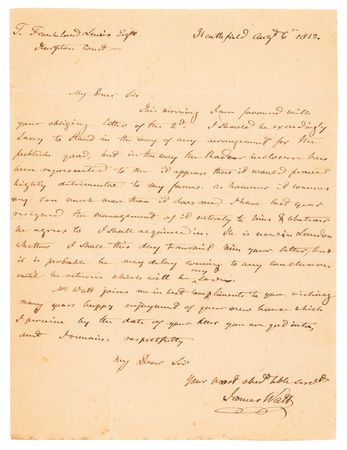 T. Frankland Lewis Esqr
Harpton Court
Heathfield Augt 6th 1812
My Dear Sir
This morning I am favoured with
your obliging letter of the 2d. I should be exceedingly
sorry to stand in the way of any arrangement for the
publick good, but in the way the Radnor inclosure has
been represented to me it appears that it would prove
highly detrimental to my farms. as however it concerns
my Son much more than it does me I have last year
resigned the management of it entirely to him & whatever
he agrees to I shall acquiesce in. He is now in London
whither I shall this day transmit him your letter, but
it is probable he may delay coming to any conclusion
until he returns which will be very soon
Mrs Watt joins me in best compliments to you, wishing
many years happy enjoyment of your new house which
I presume by the date of your letter you are got into,
and I remain respectfully
My Dear Sir
Your most obedt hble servt
James Watt